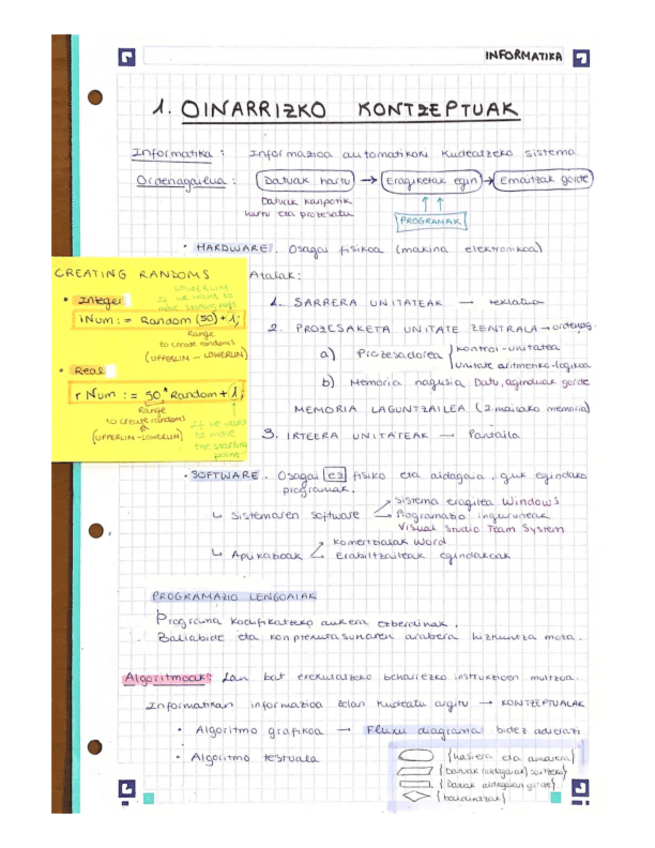 INFORMATIKA
1. OINARRIZKO KONTZEPTUAK
Informatika : Informazioa automatikoki kudeatzeko sistema.
Ordenagailua : Datuak hartu → Eragiketak egin → Emaitzak gorde
Datuak kanpotik
hartu eta prozesatu
↑ ↑
PROGRAMAK
• HARDWARE. Osagai fisikoa (makina elektronikoa)
Atalak:
1. SARRERA UNITATEAK — teklatua
2. PROZESAKETA UNITATE ZENTRALA → ordenag.
a) Prozesadorea { kontrol-unitatea
Unitate aritmetiko-logikoa
b) Memoria nagusia Datu, aginduak gorde
MEMORIA LAGUNTZAILEA (2.mailako memoria)
3. IRTEERA UNITATEAK — Pantaila
CREATING RANDOMS
• Integer
LOWERLIM
If we want to
move starting
iNum := Random (50) + 1;
Range
to create randoms
(UPPERLIM - LOWERLIM)
• Real
rNum := 50 * Random + 1;
Range
to create randoms
(UPPERLIM - LOWERLIM)
If we want
to move
the starting
point
• SOFTWARE. Osagai ez fisiko eta aldagaia, guk egindako
programak.
↳ Sistemaren software
Sistema eragilea Windows
Programazio inguruneak
Visual Studio Team System
↳ Aplikazioak
Komertzialak Word
Erabiltzaileak egindakoak
PROGRAMAZIO LENGOAIAK
Programa kodifikatzeko aukera ezberdinak.
Baliabide eta konplexutasunaren arabera hizkuntza mota.
Algoritmoak: Lan bat exekutatzeko beharrezko instrukzioen multzoa.
Informatikan informazioa zelan kudeatu argitu → KONTZEPTUALAK
• Algoritmo grafikoa → Fluxu diagrama bidez adierazi
• Algoritmo testuala
{hasiera eta amaiera}
{Datuak aldagaian gorde}
{baldintzak}